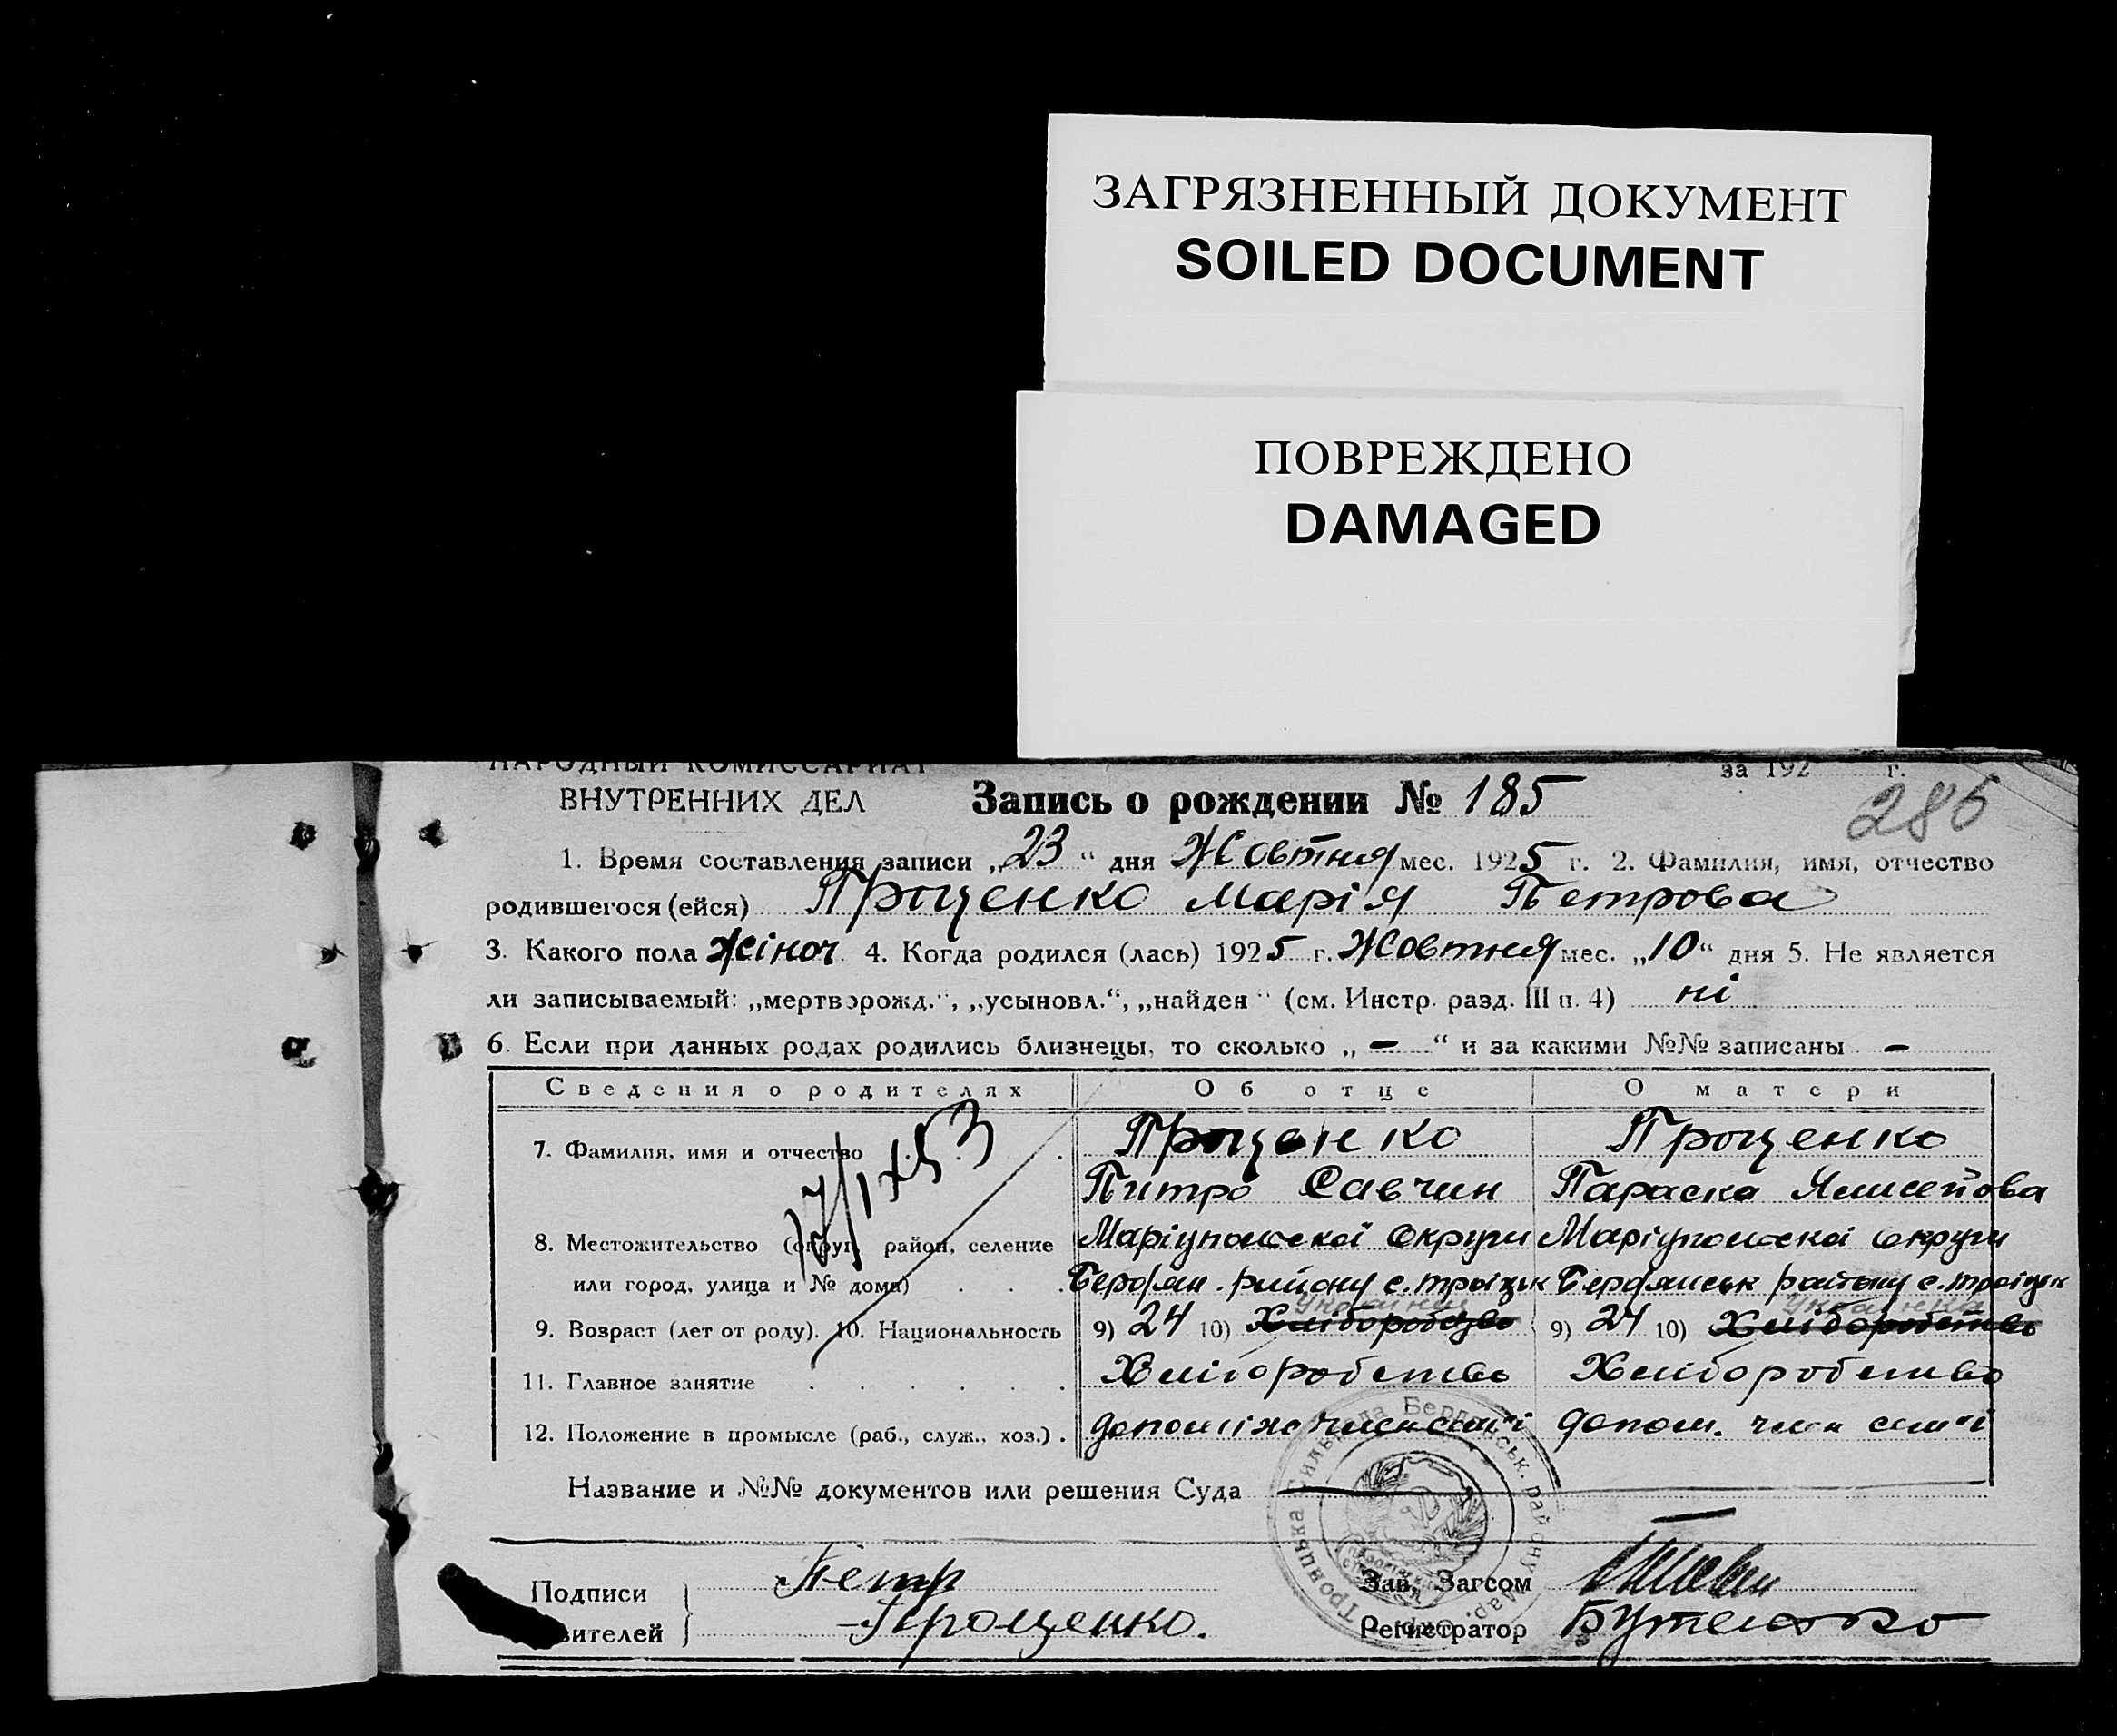 ЗАГРЯЗНЕННЫЙ ДОКУМЕНТ
SOILED DOCUMENT
ПОВРЕЖДЕНО
DAMAGED
НАРОДНЫЙ КОМИССАРИАТ за 192 г.
ВНУТРЕННИХ ДЕЛ Запись о рождении № 185 286
1. Время составления записи „23“ дня Жовтня мес. 1925 г. 2. Фамилия, имя, отчество
родившегося (ейся) Проценко Марія Петрова
3. Какого пола жіноч 4. Когда родился (лась) 1925 г. Жовтня мес. „10“ дня 5. Не является
ли записываемый: „мертворожд.“, „усыновл.“, „найден“ (см. Инстр. разд. III п. 4) ні
6. Если при данных родах родились близнецы, то сколько „ – “ и за какими №№ записаны –
Сведения о родителях Об отце О матери
7. Фамилия, имя и отчество Проценко Проценко
Питро Савчин Параска
8. Местожительство (округ, район, селение Маріупольскої Округи Маріупольскої округи
или город, улица и № дома) Бердян. району с. Бердянськ району с.
Українец Українка
9. Возраст (лет от роду). 10. Национальность 9) 24 10) Хліборобство 9) 24 10) Хліборобство
11. Главное занятие Хліборобство Хліборобство
12. Положение в промысле (раб., служ., хоз.) допоміж член сем'ї допом. член сем'ї
Название и №№ документов или решения Суда
Подписи Петр Зав. Загсом
вителей Проценко. Регистратор Бутенко